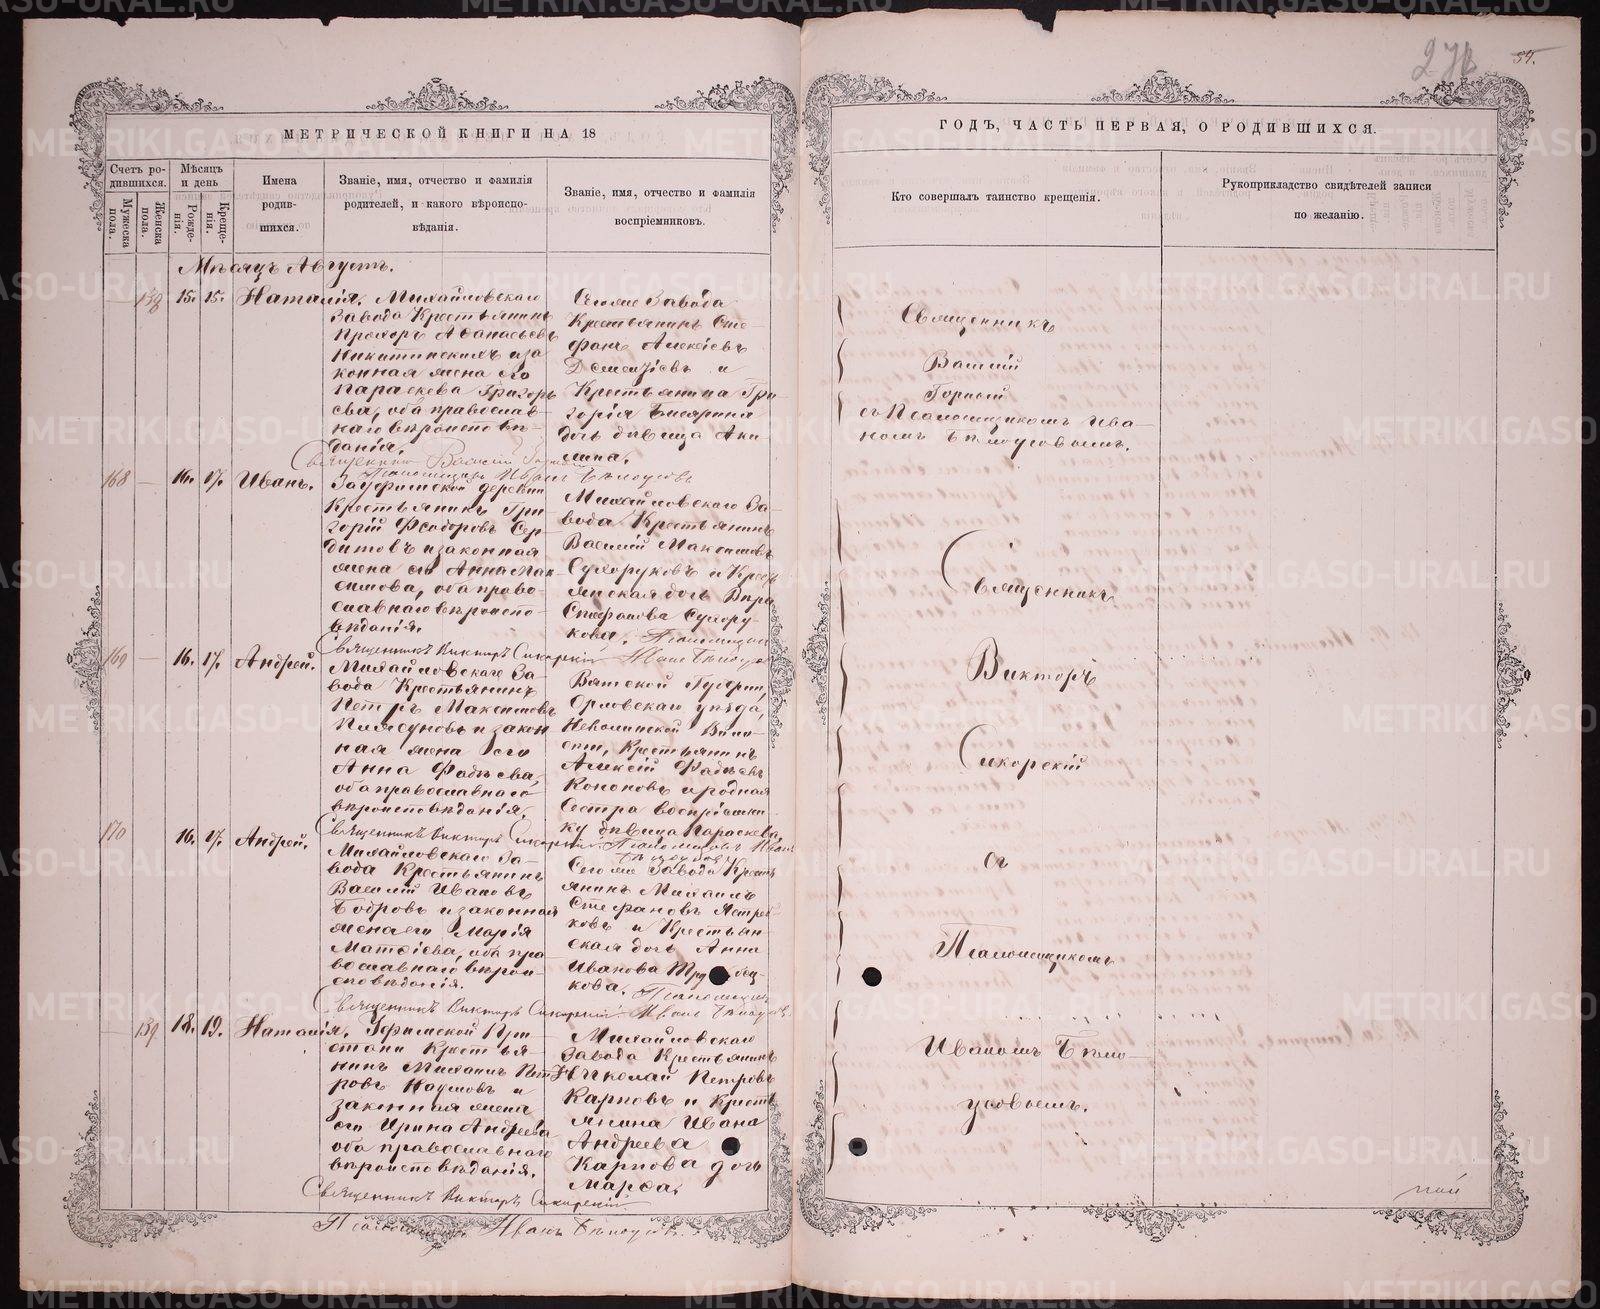 54.
МЕТРИЧЕСКОЙ КНИГИ НА 18
Счетъ ро-
дившихся.
Мѣсяцъ
и день
Имена
родив-
шихся.
Званіе, имя, отчество и фамилія
родителей, и какого вѣроиспо-
вѣданія.
Званіе, имя, отчество и фамилія
воспріемниковъ.
Мужеска
пола.
Женска
пола.
Рожде-
нія.
Креще-
нія.
Мѣсяцъ Августъ.
15. 15. Наталія.
Михайловскаго
Завода Крестьянинъ
Прохоръ Аѳанасьевъ
Никитинскихъ и за
конная жена его
Параскева Григорь
ева, оба православ-
наго вѣроисповѣ-
данія.
Священникъ Василій Горный
Псаломщикъ Иванъ Бѣлоусовъ
Сегоже Завода
Крестьянинъ Сте-
фанъ Алексѣевъ
Дементіевъ и
Крестьянина Гри-
горія
дочь дѣвица Аки-
лина.
168 — 16. 17. Иванъ.
Зауфимской деревни
Крестьянинъ Гри
горій Ѳеодоровъ Сер-
дитовъ и законная
жена его Анна Мак-
симова, оба право-
славнаго вѣроиспо-
вѣданія.
Священникъ Викторъ Сикорскій
Михайловскаго За-
вода Крестьянинъ
Василій Максимовъ
Сухоруковъ и Крест
янская дочь Вѣра
Стефанова Сухору-
кова. Псаломщикъ
Иванъ Бѣлоусовъ
169 — 16. 17. Андрей.
Михайловскаго За-
вода Крестьянинъ
Петръ Максимовъ
Плясуновъ и закон
ная жена его
Анна Фадѣева,
оба православнаго
вѣроисповѣданія.
Священникъ Викторъ Сикорскій
Вятской Губерніи,
Орловскаго уѣзда,
Воло-
сти, Крестьянинъ
Алексій Фадѣевъ
Кононовъ и родная
Сестра воспріемни-
ку дѣвица Параскева.
Псаломщикъ Иванъ
Бѣлоусовъ
170 16. 17. Андрей.
Михайловскаго За-
вода Крестьянинъ
Василій Ивановъ
Бобровъ и законная
жена его Марія
Матѳіева, оба пра
вославнаго вѣрои-
сповѣданія.
Священникъ Викторъ Сикорскій
Сегоже Завода Кресть
янинъ Михаилъ
Стефановъ Ястреб-
ковъ и Крестьян-
ская дочь Анна
Иванова
кова. Псаломщикъ
Иванъ Бѣлоусовъ
— 139. 18. 19. Наталія.
Уфимской При
стани Крестья-
нинъ Михаилъ Пет
ровъ Наумовъ и
законная жена
его Ирина Андреева
оба православнаго
вѣроисповѣданія.
Священникъ Викторъ Сикорскій
Псаломщикъ Иванъ Бѣлоусовъ.
Михайловскаго
Завода Крестьянинъ
Николай Петровъ
Карповъ и Кресть
янина Ивана
Андреева
Карпова дочь
Марѳа.
ГОДЪ, ЧАСТЬ ПЕРВАЯ, О РОДИВШИХСЯ.
Кто совершалъ таинство крещенія.
Рукоприкладство свидѣтелей записи
по желанію.
Священникъ
Василій
Горный
съ Псаломщикомъ Ива-
номъ Бѣлоусовымъ.
Священникъ
Викторъ
Сикорскій
съ
Псаломщикомъ
Иваномъ Бѣло-
усовымъ.
METRIKI.GASO-URAL.RU